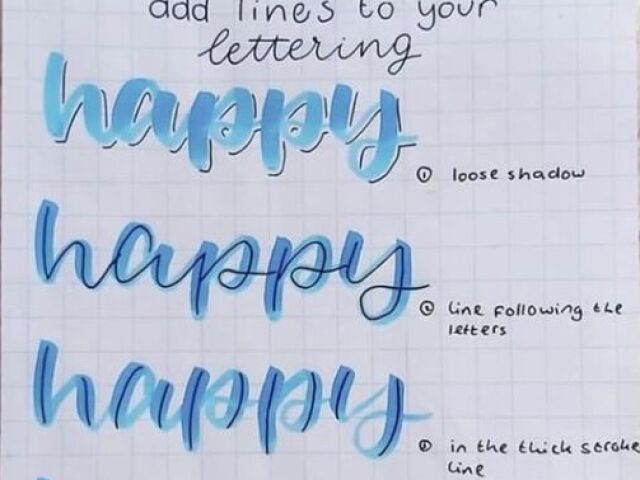 add lines to your
lettering
happy
① loose shadow
happy
② line following the
letters
happy
③ in the thick stroke
line